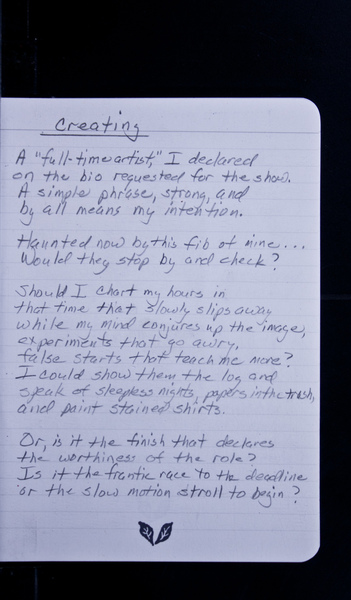 Creating
A "full-time artist," I declared
on the bio requested for the show.
A simple phrase, strong, and
by all means my intention.
Haunted now by this fib of mine...
Would they stop by and check?
Should I chart my hours in
that time that slowly slips away
while my mind conjures up the image,
experiments that go awry,
false starts that teach me more?
I could show them the log and
speak of sleepless nights, papers in the trash,
and paint stained shirts.
Or, is it the finish that declares
the worthiness of the role?
Is it the frantic race to the deadline
or the slow motion stroll to begin?